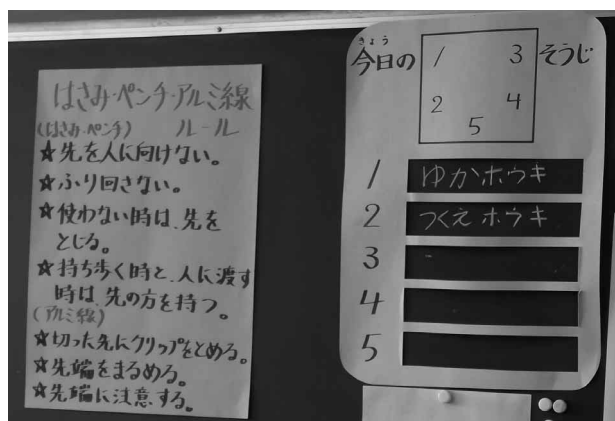 はさみ・ペンチ・アルミ線
(はさみ・ペンチ) ルール
★先を人に向けない。
★ふり回さない。
★使わない時は、先を
とじる。
★持ち歩く時と、人に渡す
時は、先の方を持つ。
(アルミ線)
★切った先にクリップをとめる。
★先端をまるめる。
★先端に注意する。
きょう
今日の 1 3 そうじ
2 4
5
1 ゆかホウキ
2 つくえホウキ
3
4
5